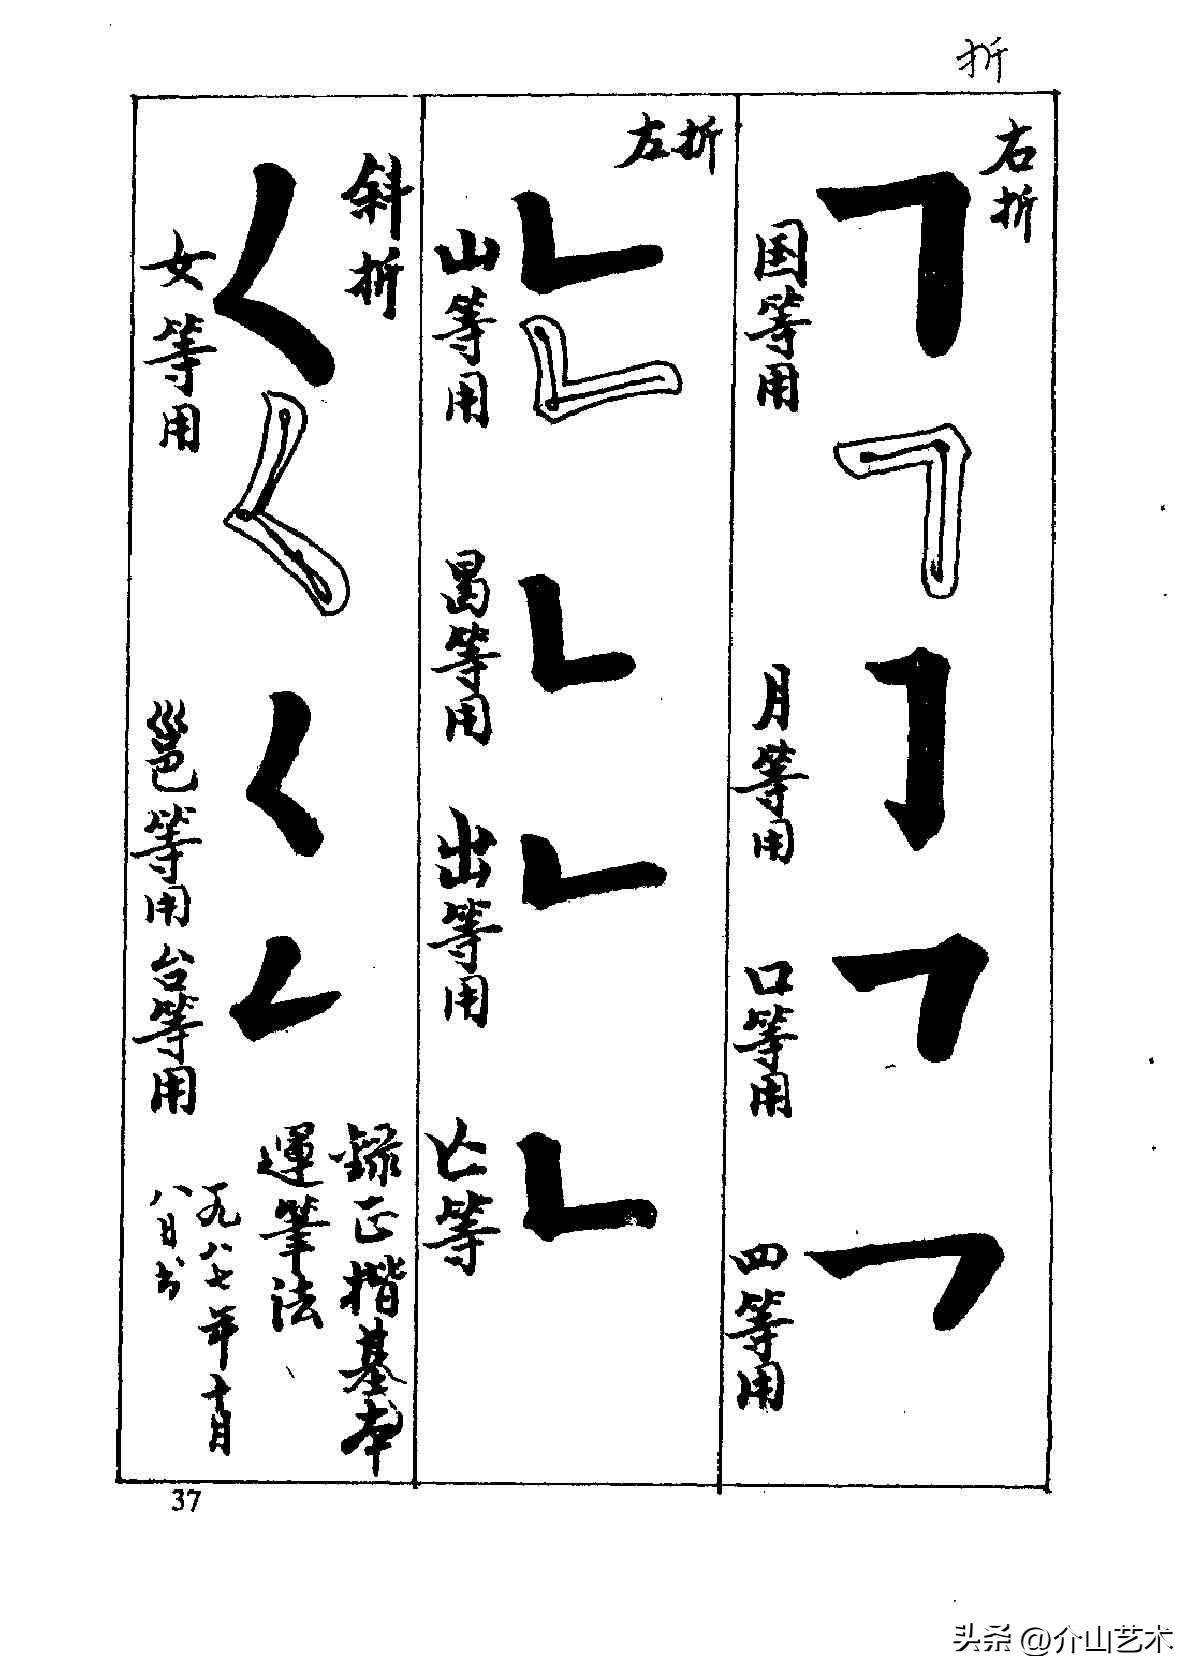 折
右折
国等用
月等用
口等用
四等用
左折
山等用
昌等用
出等用
亡等
斜折
女等用
邕等用
台等用
録正楷基本
運筆法
一九八七年十月
八日书
37
头条 @介山艺术